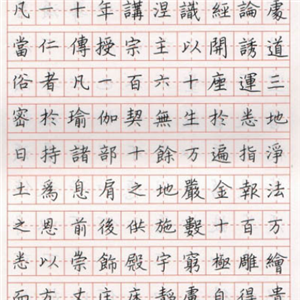 凡一十年講涅識經論處
當仁傳授宗主以開誘道
俗者凡一百六十座運三
密於瑜伽契無生於悉地
日持諸部十餘万遍指淨
土爲息肩之地嚴金報法
之恩前後供施數十百万
悉以崇飾殿宇窮極雕繪
而方丈床靜慮自得貴